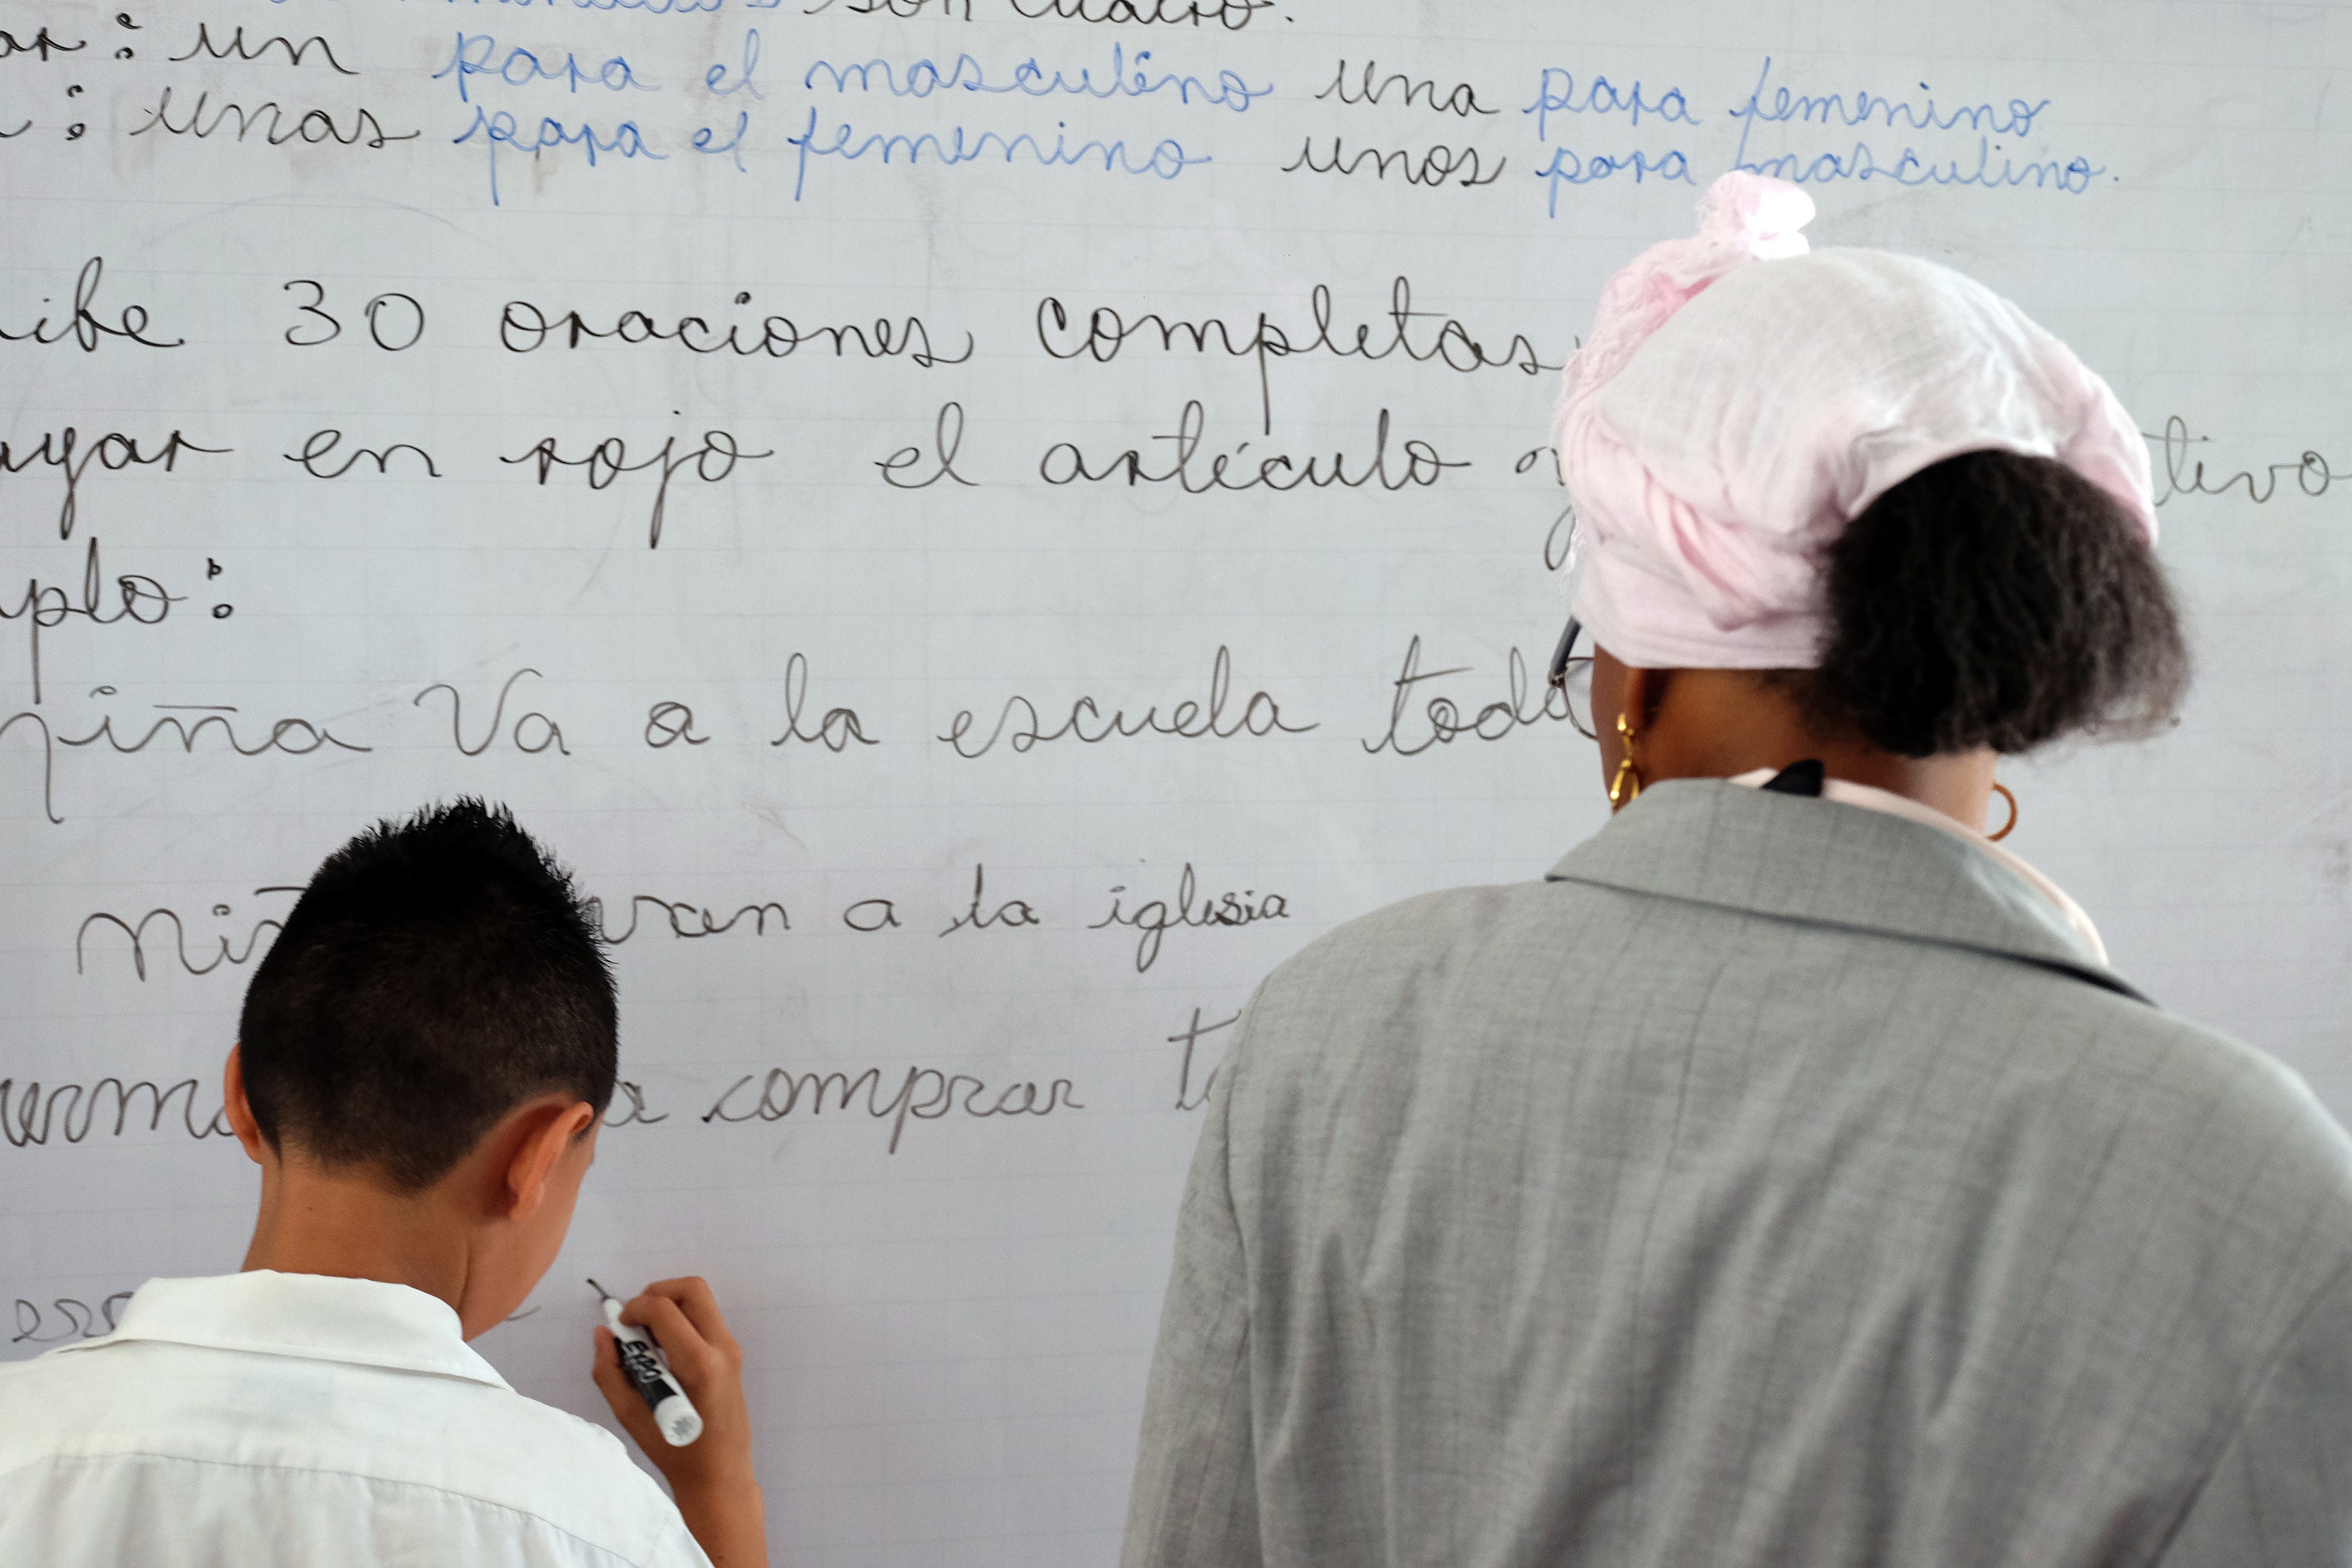 son cuatro.
: un para el masculino una para femenino
: unas para el femenino unos para masculino.
ibe 30 oraciones completas
ayar en rojo el artículo y tivo
plo:
niña va a la escuela tod
niñ van a la iglesia
a comprar t
EXPO